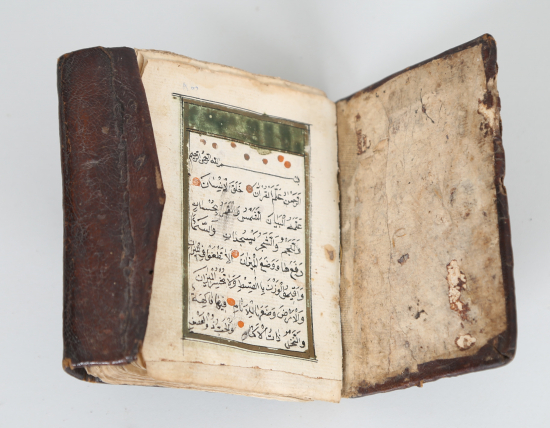 بسم الله الرحمن الرحيم
الرَّحْمٰنُ عَلَّمَ الْقُرْاٰنَ خَلَقَ الْاِنْسَانَ
عَلَّمَهُ الْبَيَانَ اَلشَّمْسُ وَالْقَمَرُ بِحُسْبَانٍ
وَالنَّجْمُ وَالشَّجَرُ يَسْجُدَانِ وَالسَّمَآءَ
رَفَعَهَا وَوَضَعَ الْمِيزَانَ اَلَّا تَطْغَوْا فِي الْمِيزَانِ
وَاَقِيمُوا الْوَزْنَ بِالْقِسْطِ وَلَا تُخْسِرُوا الْمِيزَانَ
وَالْاَرْضَ وَضَعَهَا لِلْاَنَامِ فِيهَا فَاكِهَةٌ
وَالنَّخْلُ ذَاتُ الْاَكْمَامِ وَالْحَبُّ ذُو الْعَصْفِ